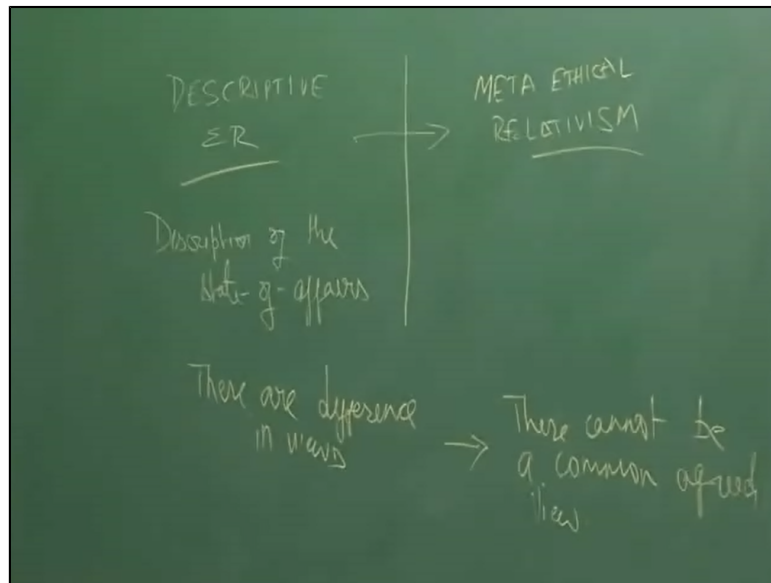 DESCRIPTIVE
ER
META ETHICAL
RELATIVISM
Description of the
state-of-affairs
There are difference
in
There cannot be
a common agreed
view